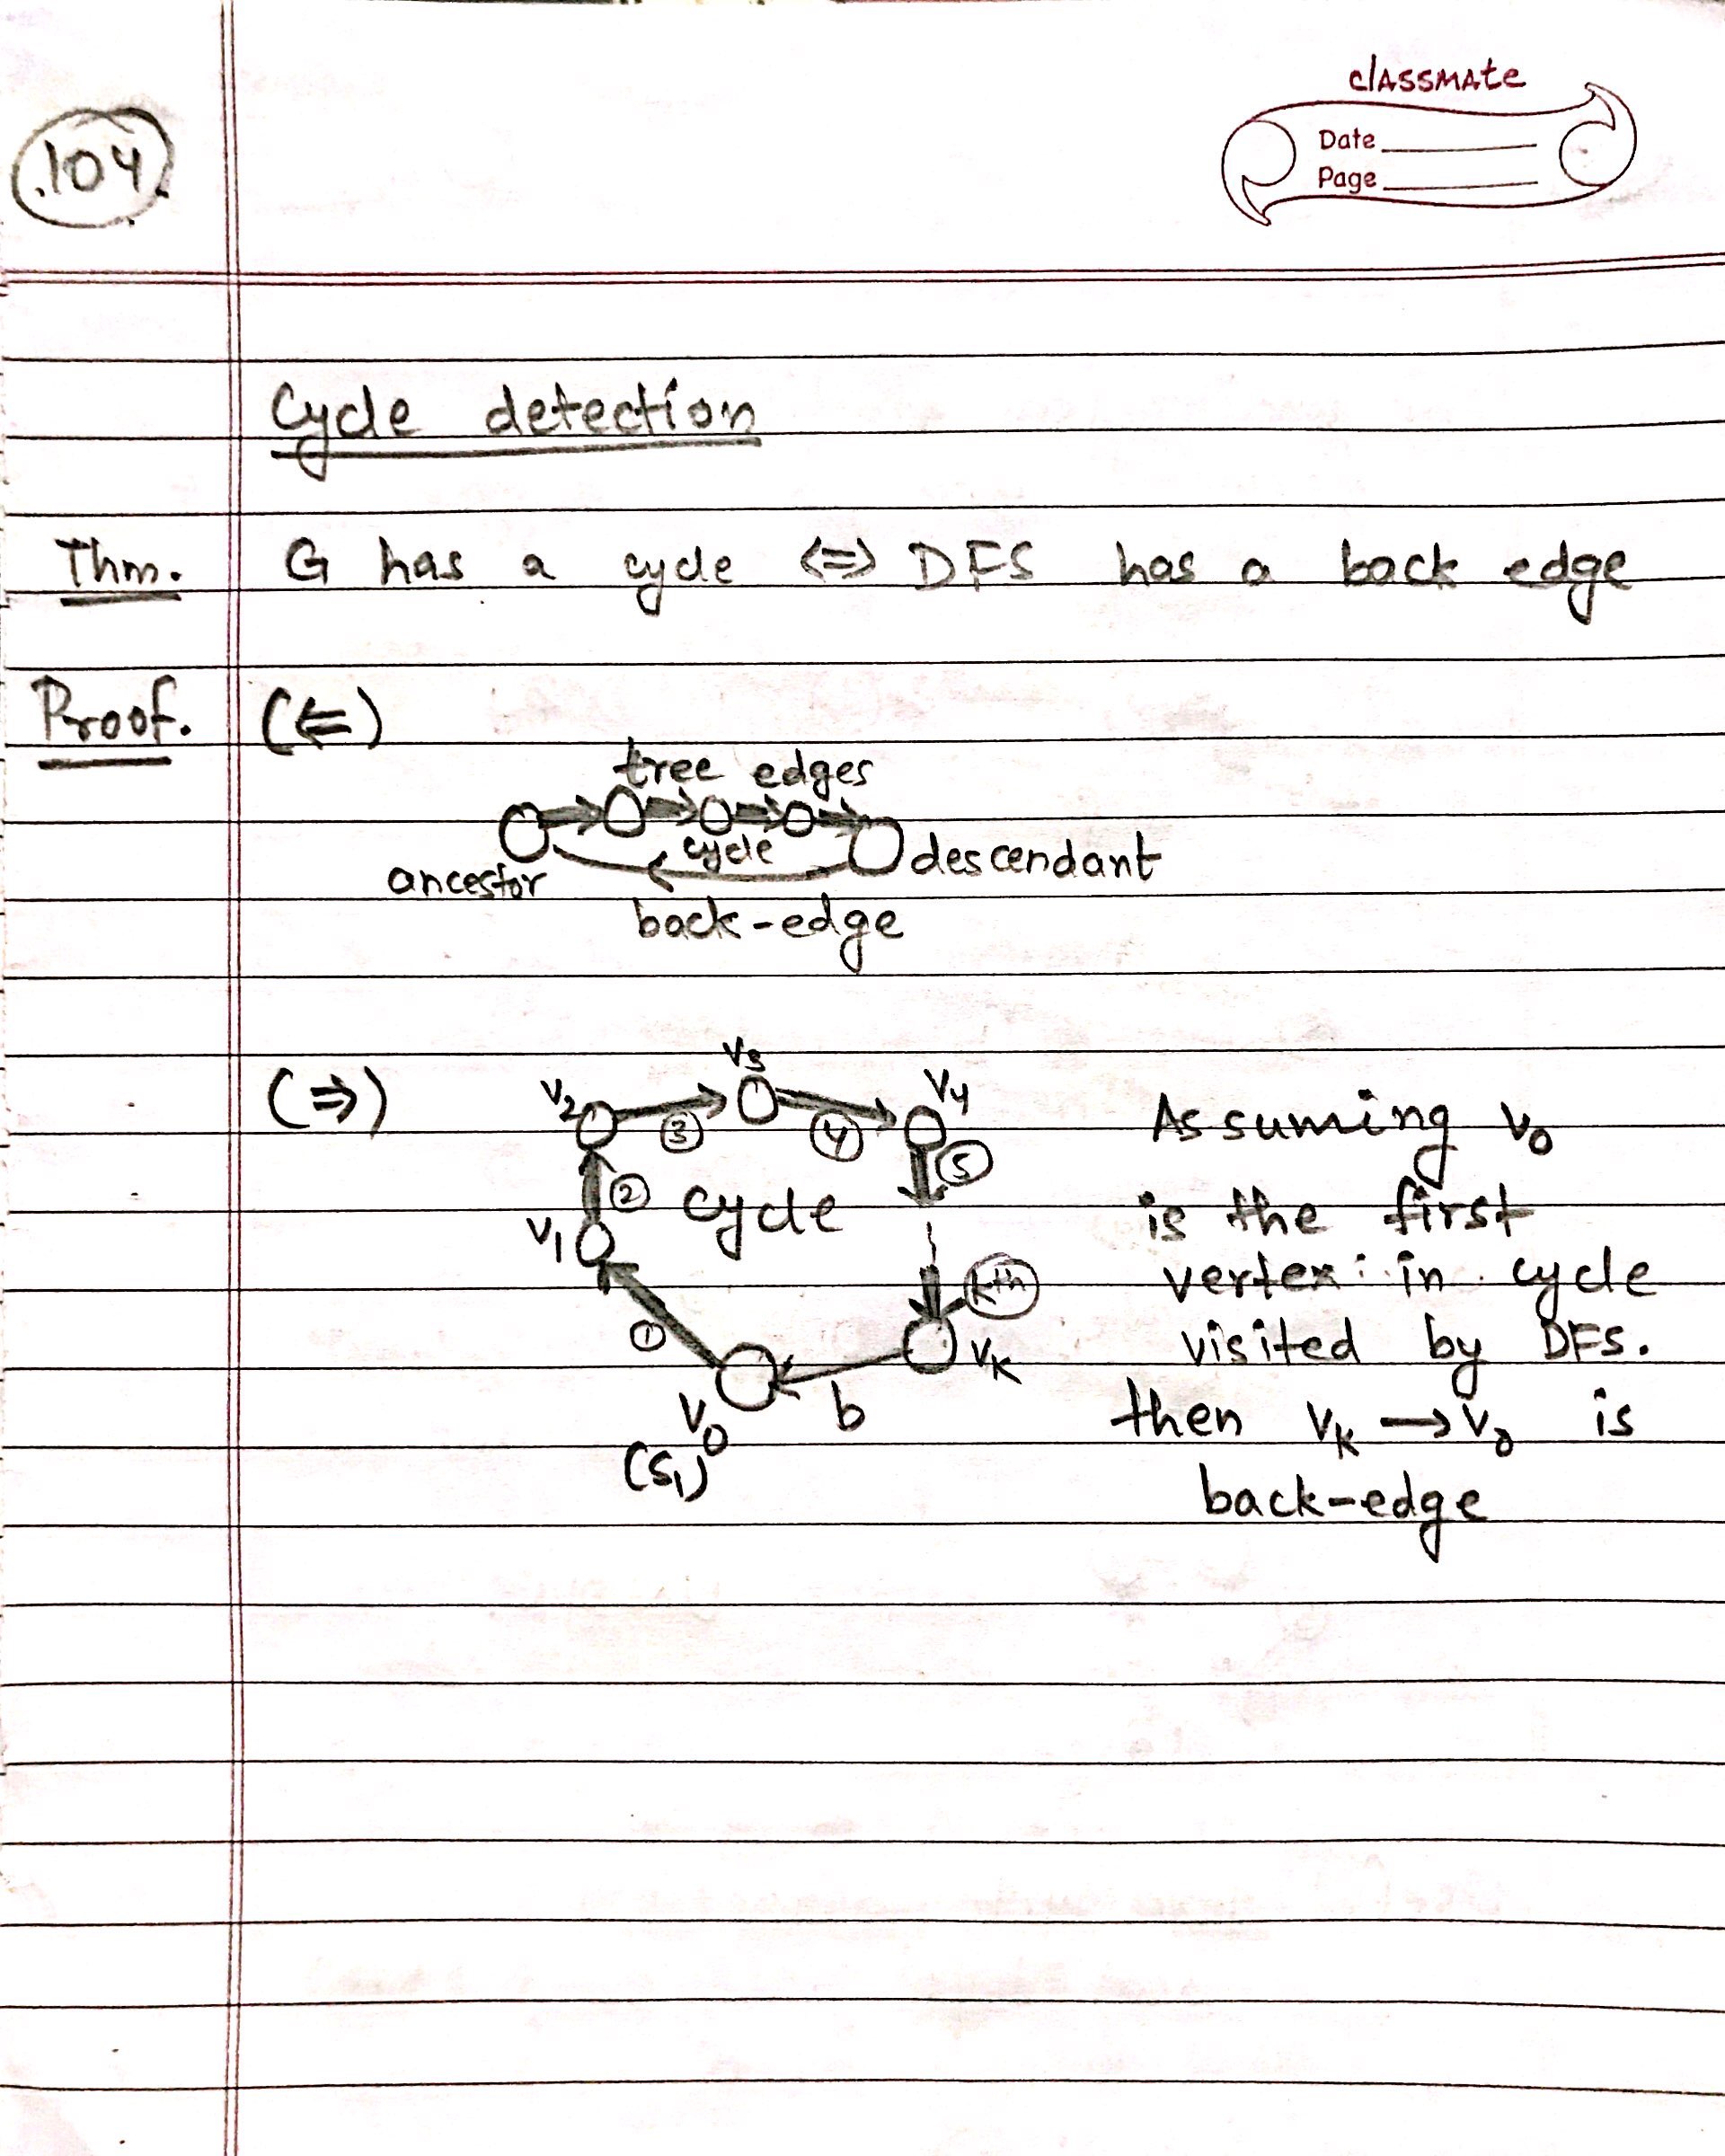 classmate
Date
Page
.104.
Cycle detection
Thm. G has a cycle <=> DFS has a back edge
Proof. (⇐)
tree edges
cycle
ancestor
descendant
back-edge
(⇒)
v3
v2
v4
3
4
5
2
cycle
v1
kth
1
vk
v0
b
(s1)
Assuming v0
is the first
vertex in cycle
visited by DFS.
then vk → v0 is
back-edge